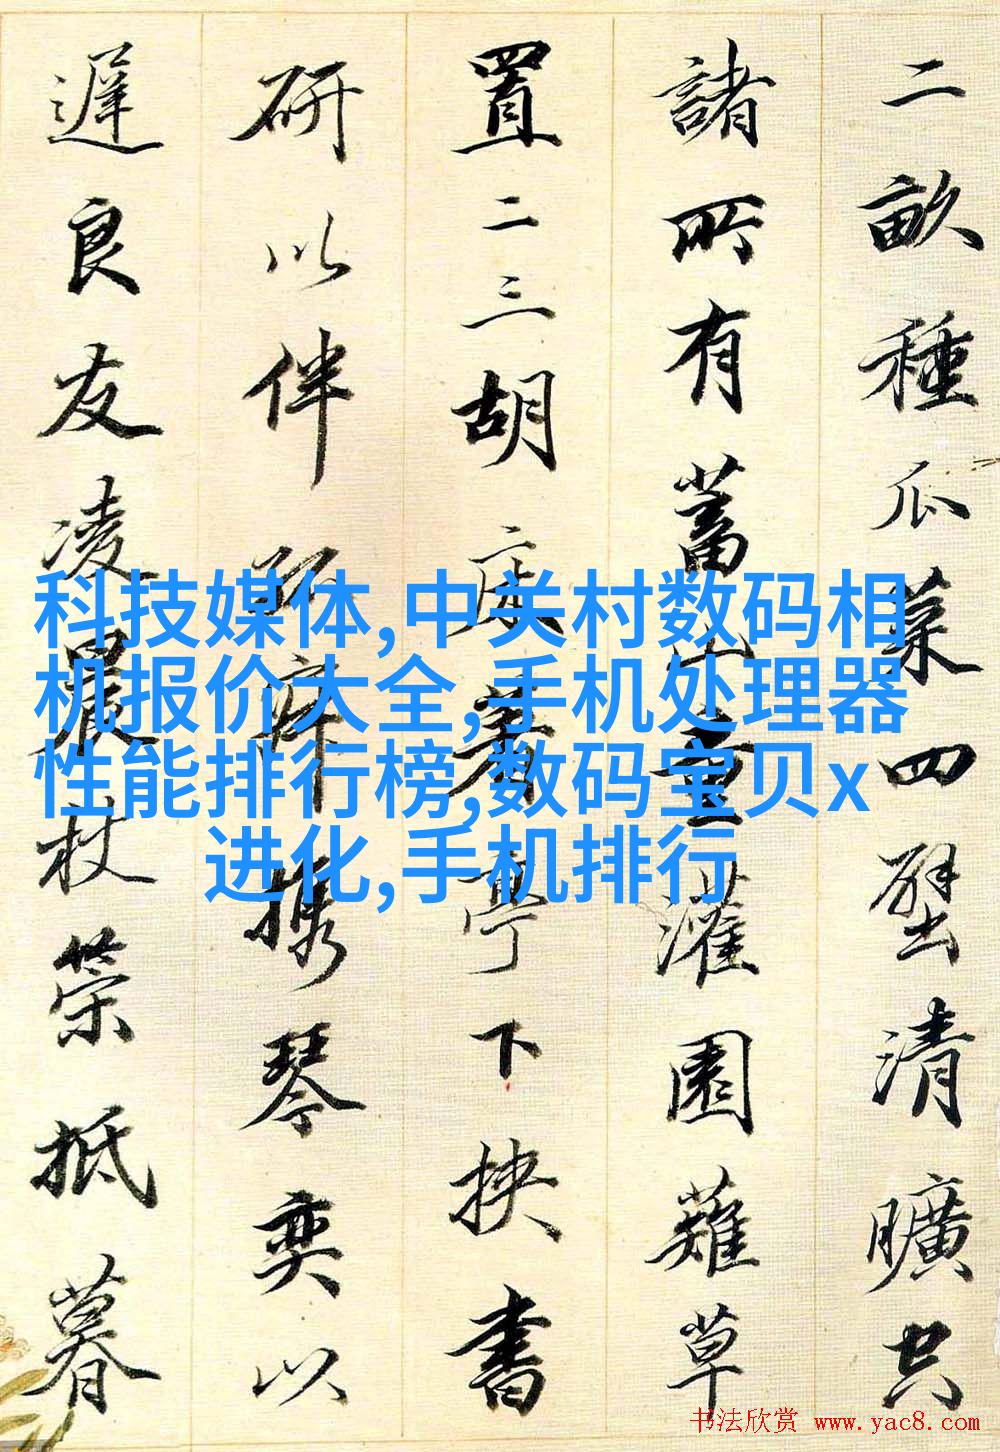 二畝種瓜菜四壁清曠空
諸所有蓄山童灌園薙草
置二三胡床著亭下挾書
研以伴孤寂攜琴奕以
遲良友凌晨杖策抵暮
科技媒体,中关村数码相
机报价大全,手机处理器
性能排行榜,数码宝贝x
进化,手机排行
书法欣赏 www.yac8.com